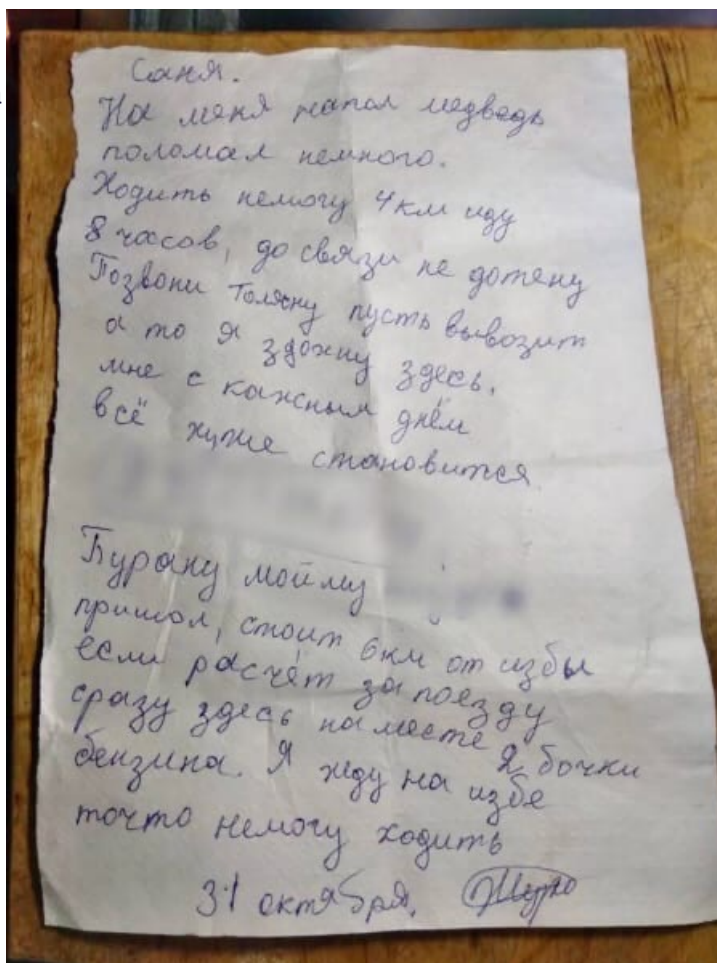 Саня.
На меня напал медведь
поломал немного.
Ходить немогу 4 км иду
8 часов, до связи не дотену
Позвони Толяну пусть вывозит
а то я здохну здесь.
мне с кажным днём
всё хуже становится
Бурану мойму
пришол, стоит 6 км от избы
если расчёт за поезду
сразу здесь на месте 2 бочки
бензина. Я жду на избе
точто немогу ходить
31 октября.